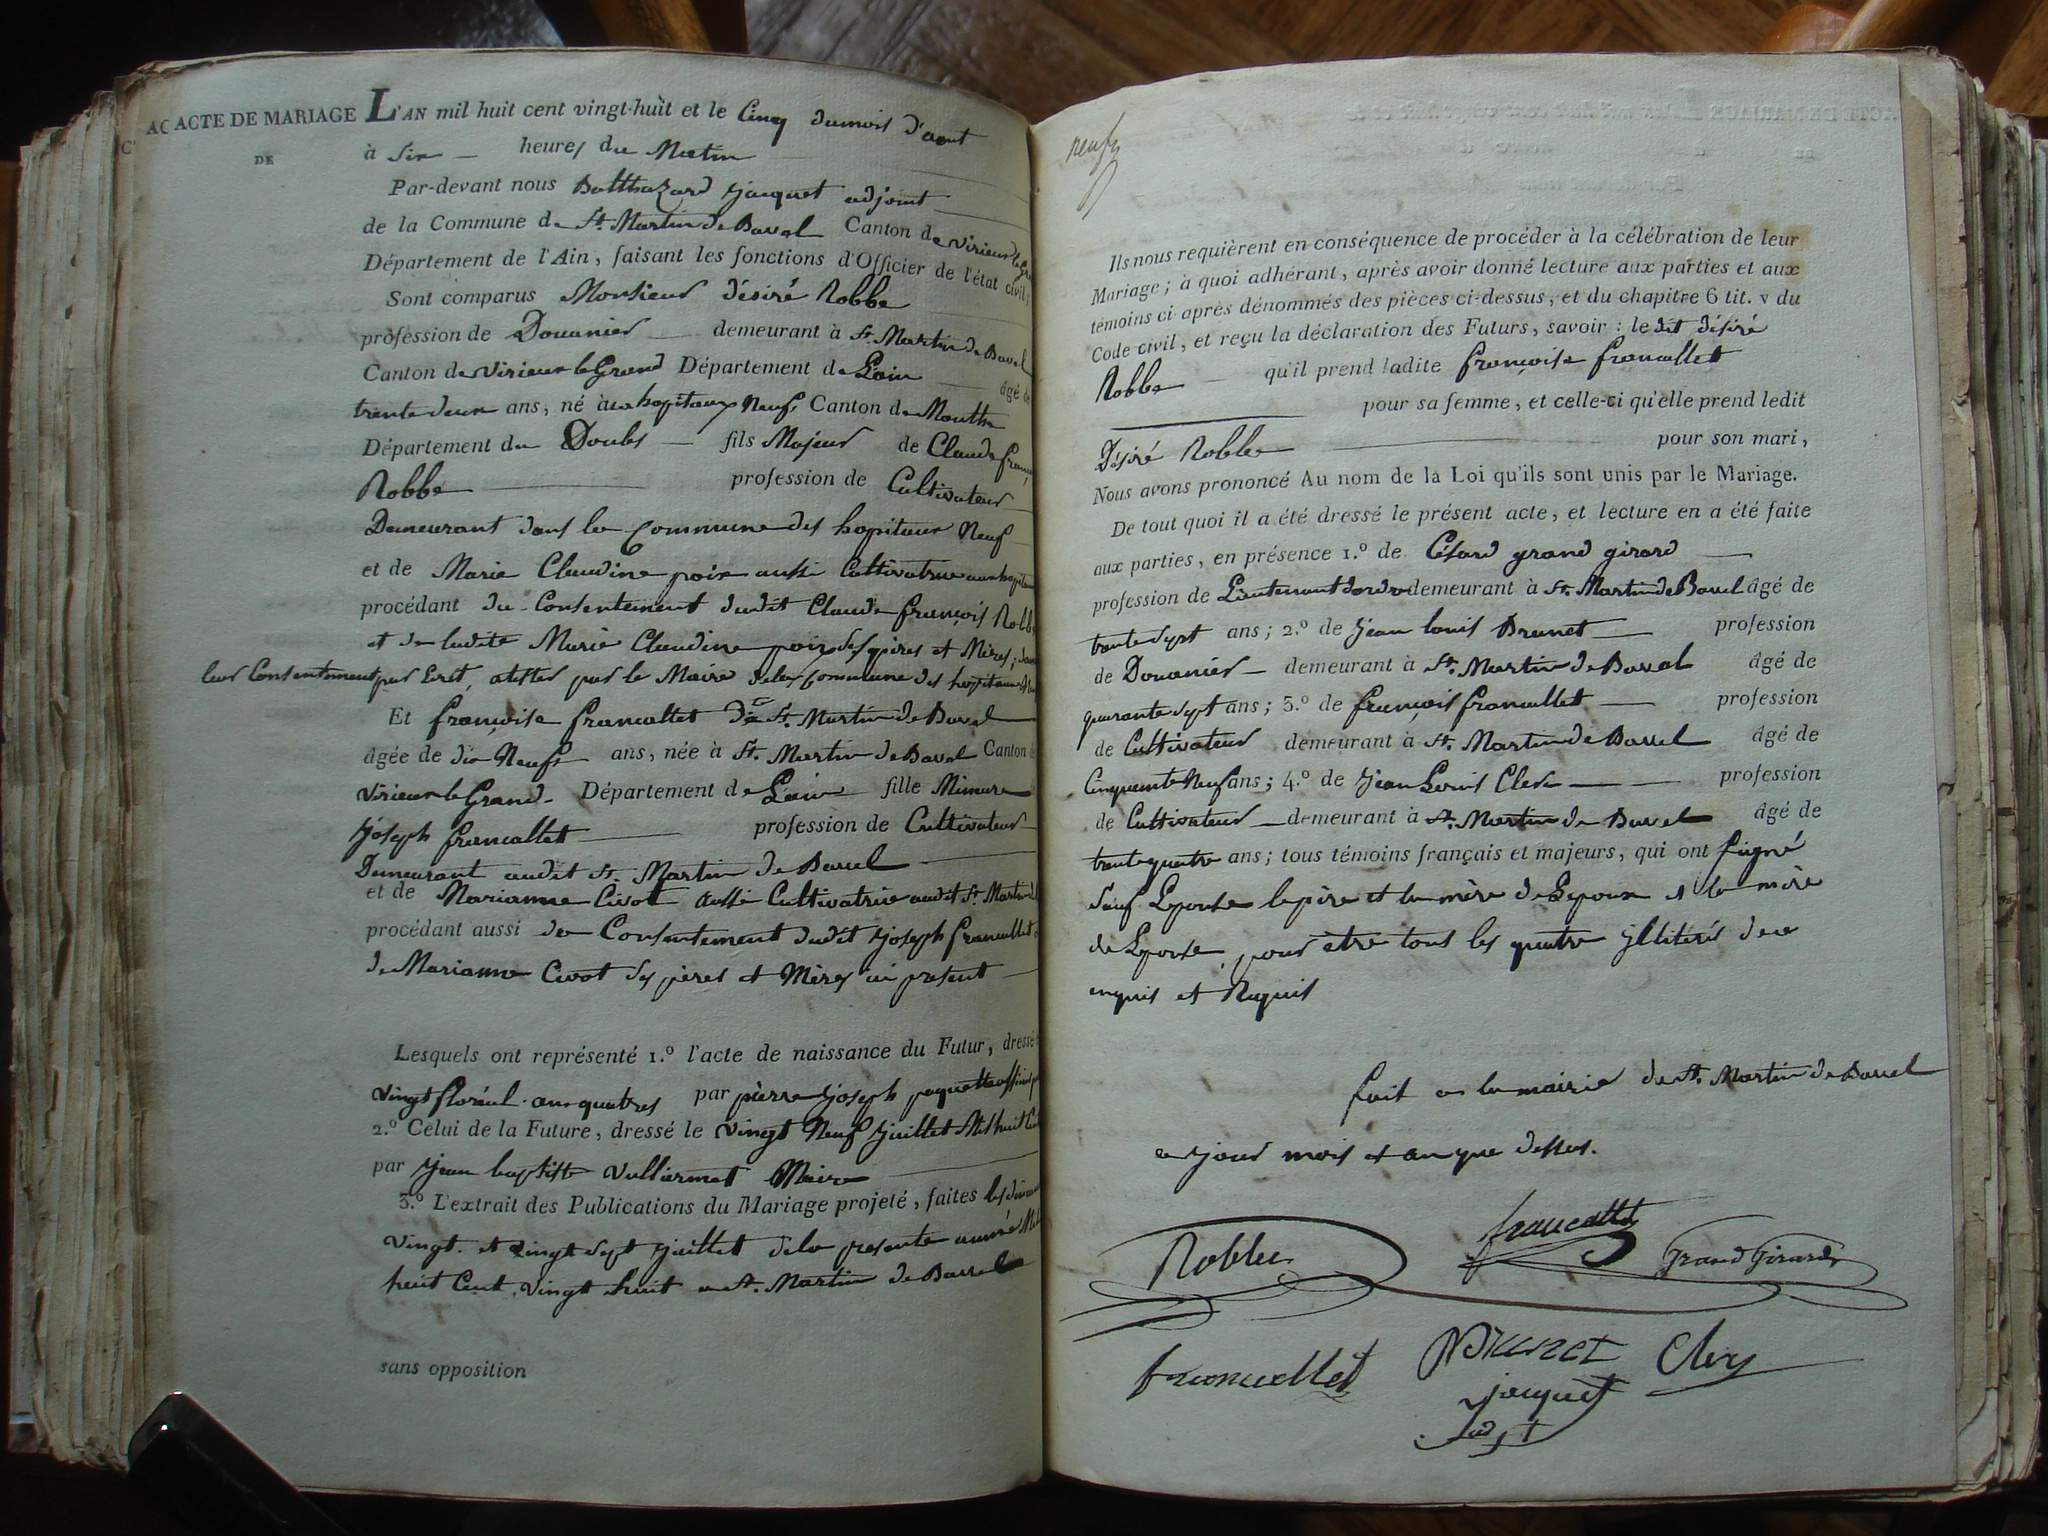 ACTE DE MARIAGE
DE
L'AN mil huit cent vingt-huit et le Cinq du mois d'aout
à Six heures du Matin
Par-devant nous Balthazard Jacquet adjoint
de la Commune de St. Martin de Bavel Canton de Virieu le Gr
Département de l'Ain, faisant les fonctions d'Officier de l'état civil;
Sont comparus Monsieur désiré Robbe
profession de Douanier demeurant à St. Martin de Bavel
Canton de Virieux le Grand Département de Lain âgé de
trente deux ans, né à hopitaux Neufs Canton de Mouthe
Département du Doubs fils Majeur de Claude franç
Robbe profession de Cultivateur
Demeurant dans la Commune des hopitaux Neuf
et de Marie Claudine poix aussi Cultivatrice aux hopitaux
procédant du Consentement dudit Claude françois Robbe
et de ladite Marie Claudine poix ses pères et Mères;
leur Consentement par Ecrit, atester par le Maire de la Commune des hopitaux
Et françoise francallet de St. Martin de Bavel
âgée de dix Neuf ans, née à St. Martin de Bavel Canton de
Virieux le Grand Département de Lain fille Mineure
Joseph francallet profession de Cultivateur
Demeurant audit St. Martin de Bavel
et de Marianne Civot aussi Cultivatrice audit St. Martin
procédant aussi du Consentement dudit Joseph francallet
de Marianne Civot ses pères et Mères ici présent
Lesquels ont représenté 1.º l'acte de naissance du Futur, dressé le
vingt floréal an quatres par pierre Joseph paquette
2.º Celui de la Future, dressé le vingt Neuf Juillet Mil huit Cent
par Jean baptiste Vulliermet Maire
3.º L'extrait des Publications du Mariage projeté, faites les dimanches
vingt et vingt sept Juillet de la presente année Mil
huit Cent vingt huit a St. Martin de Bavel
sans opposition
neuf
Ils nous requièrent en conséquence de procéder à la célébration de leur
Mariage; à quoi adhérant, après avoir donné lecture aux parties et aux
témoins ci-après dénommés des pièces ci-dessus, et du chapitre 6 tit. v du
Code civil, et reçu la déclaration des Futurs, savoir: le dit désiré
Robbe qu'il prend ladite françoise francallet
pour sa femme, et celle-ci qu'elle prend ledit
Désiré Robbe pour son mari,
Nous avons prononcé Au nom de la Loi qu'ils sont unis par le Mariage.
De tout quoi il a été dressé le présent acte, et lecture en a été faite
aux parties, en présence 1.º de Césard grand girard
profession de Lieutenant d'ordre demeurant à St. Martin de Bavel âgé de
trente sept ans; 2.º de Jean louis Brunet profession
de Douanier demeurant à St. Martin de Bavel âgé de
quarante sept ans; 3.º de françois francallet profession
de Cultivateur demeurant à St. Martin de Bavel âgé de
Cinquante Neuf ans; 4.º de Jean Louis Clerc profession
de Cultivateur demeurant à St. Martin de Bavel âgé de
trente quatre ans; tous témoins français et majeurs, qui ont signé
sauf Lepouse le père et la mère de Lepoux et la mère
de Lepouse, pour être tous les quatre illitérés de ce
enquis et Requis
fait a la mairie de St. Martin de Bavel
jour mois et an que dessus.
Robbe
francallet
Grand Girard
francallet
Brunet
Clerc
Jacquet
adjt